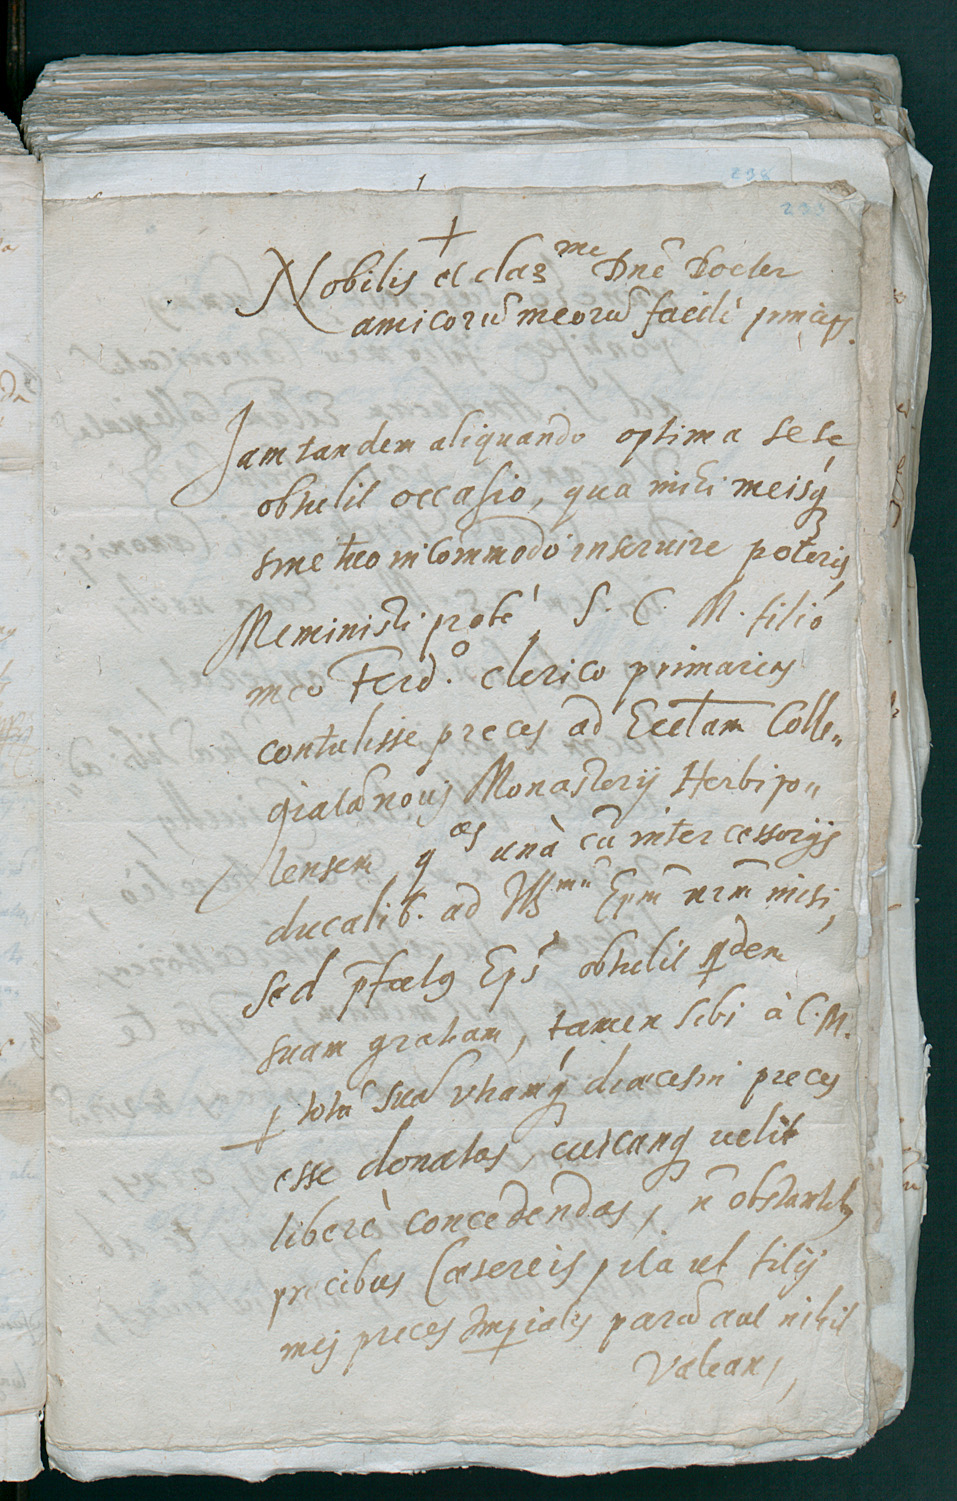 1
238
+
Nobilis et claʒᵐᵉ Dnē Doctor
amicorū meorū facilè princeps.
Jam tandem aliquando optima sese
obtulit occasio, qua mihi meisqʒ
sine tuo incommodo inseruire poteris,
Meministi probè, S. C. M. filio
meo Ferd.º clerico primarias
contulisse preces ad Ecctam Colle„
giatā noui Monasterij Herbipo„
lensem, qᵃˢ unà cū intercessorijs
ducalib. ad Illᵐᵘ Epm̄ nrm̄ misi,
Sed p̄fatꝰ Epūs obtulit qͥdem
suam gratiam, tamen sibi à C. M.
ꝑ totā suā utramqʒ diœcesin preces
esse donatas, cuicunqʒ uelit
liberè concedendas, nō obstantibꝰ
precibus Cæsereis, ita ut filij
mej preces Imꝑiales parū aut nihil
Valeant,